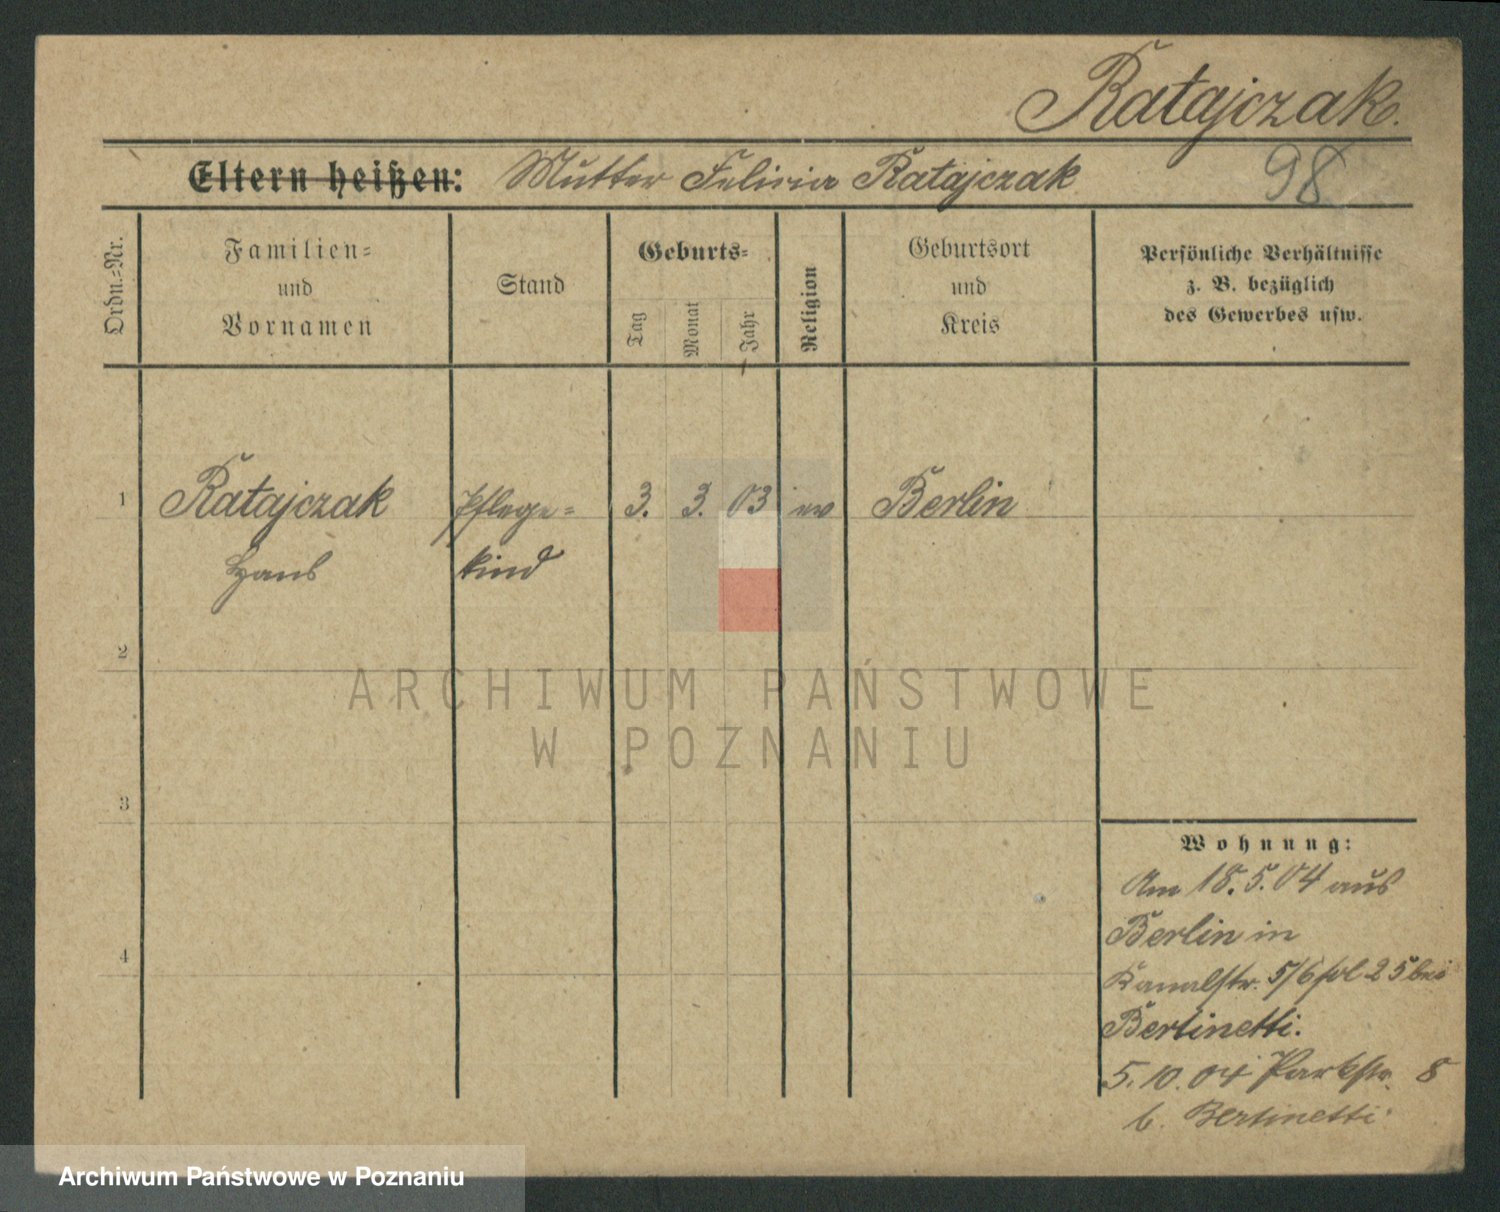 Ratajczak.
Eltern heißen: Mutter Felicia Ratajczak
98
Ordn.=Nr.
Familien=
und
Vornamen
Stand
Geburts=
Tag
Monat
Jahr
Religion
Geburtsort
und
Kreis
Persönliche Verhältnisse
z. B. bezüglich
des Gewerbes usw.
1 Ratajczak Pflege= 3. 3. 03 ev Berlin
Hans kind
2
ARCHIWUM PAŃSTWOWE
W POZNANIU
3
4
Wohnung:
Am 18.5.04 aus
Berlin in
Kanalstr. 5/6 25 bei
Bertinetti.
5.10.04 Parkstr. 8
b. Bertinetti
Archiwum Państwowe w Poznaniu